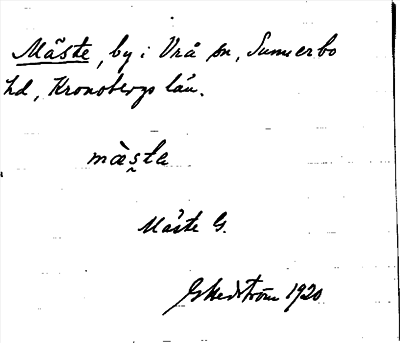 Måste, by i Vrå sn, Sunnerbo
hd, Kronobergs län.
mȧ̀s̰ta
Måste G.
G Hedström 1920